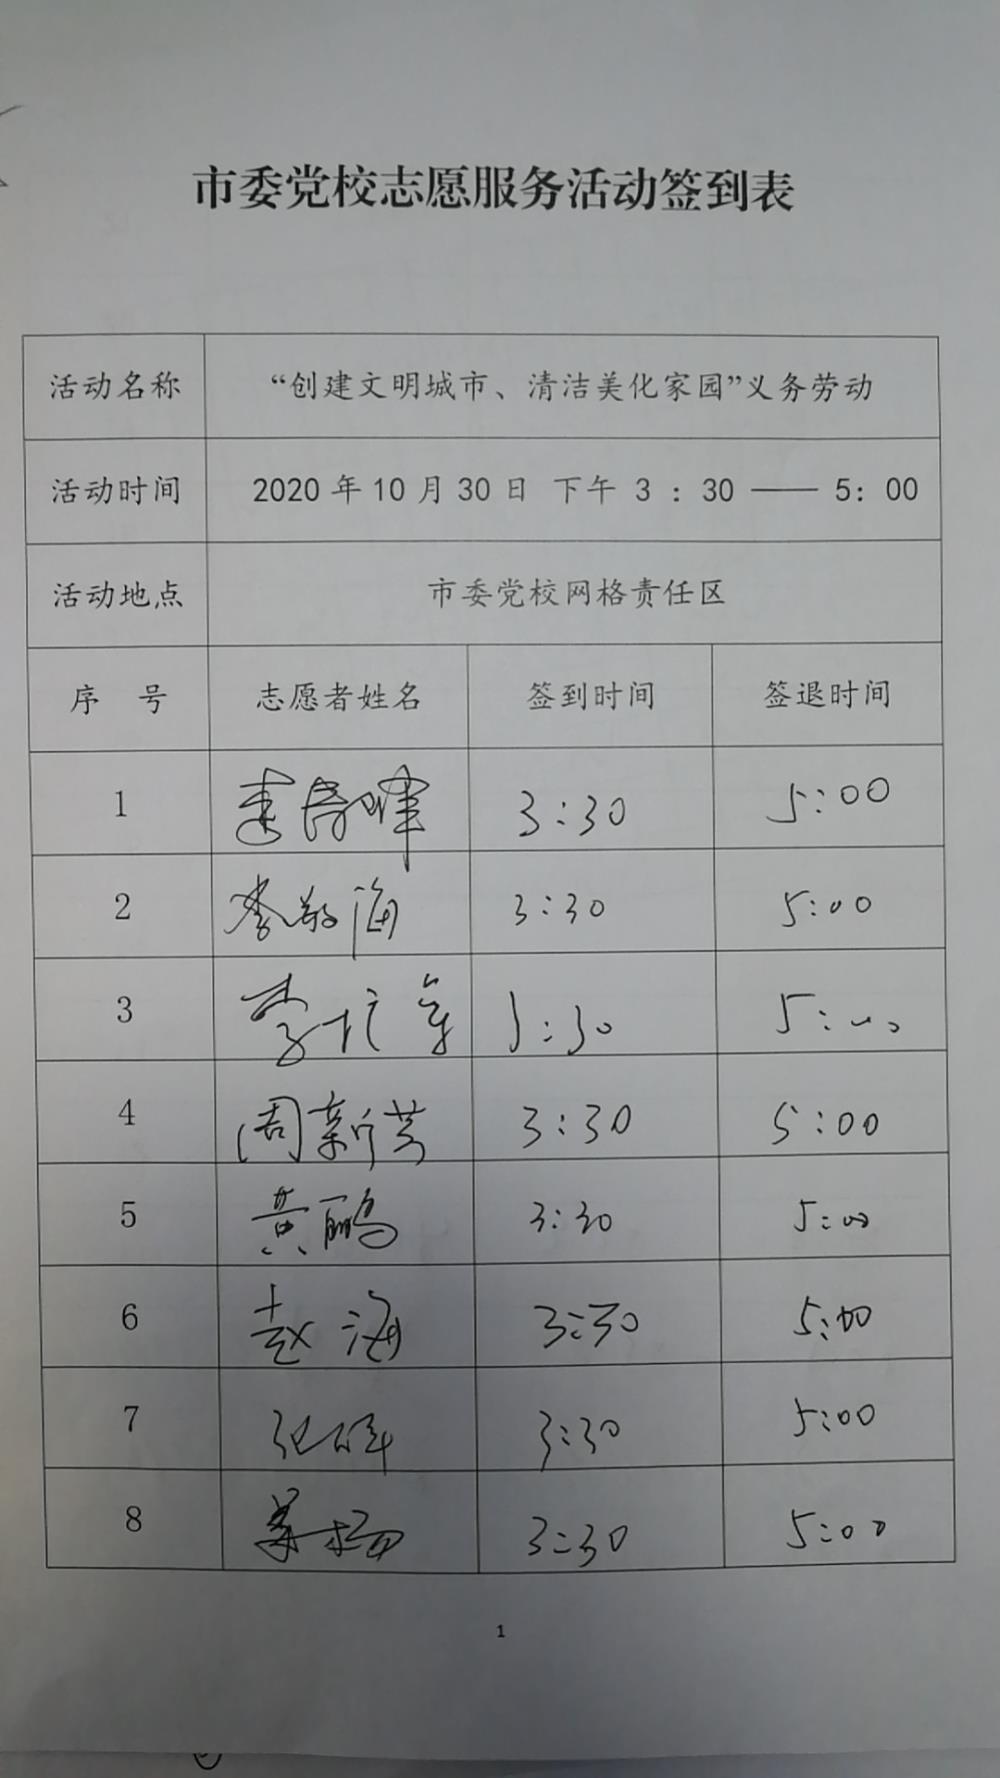 市委党校志愿服务活动签到表
活动名称 “创建文明城市、清洁美化家园”义务劳动
活动时间 2020年10月30日 下午 3：30 —— 5：00
活动地点 市委党校网格责任区
序 号 志愿者姓名 签到时间 签退时间
1 3:30 5:00
2 李敬海 3:30 5:00
3 李 3:30 5:00
4 周新芸 3:30 5:00
5 黄鹂 3:30 5:00
6 赵海 3:30 5:00
7 3:30 5:00
8 姜杨 3:30 5:00
1